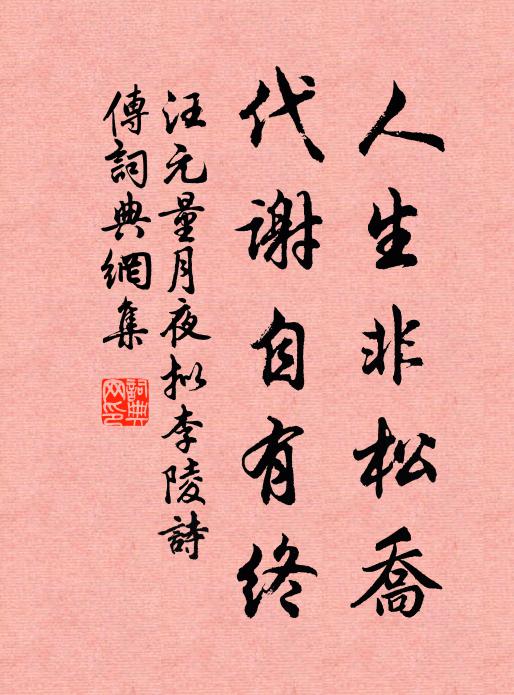 人生非松喬
代謝自有終
汪元量月夜拟李陵詩
傳詞典網集
詞典
网印